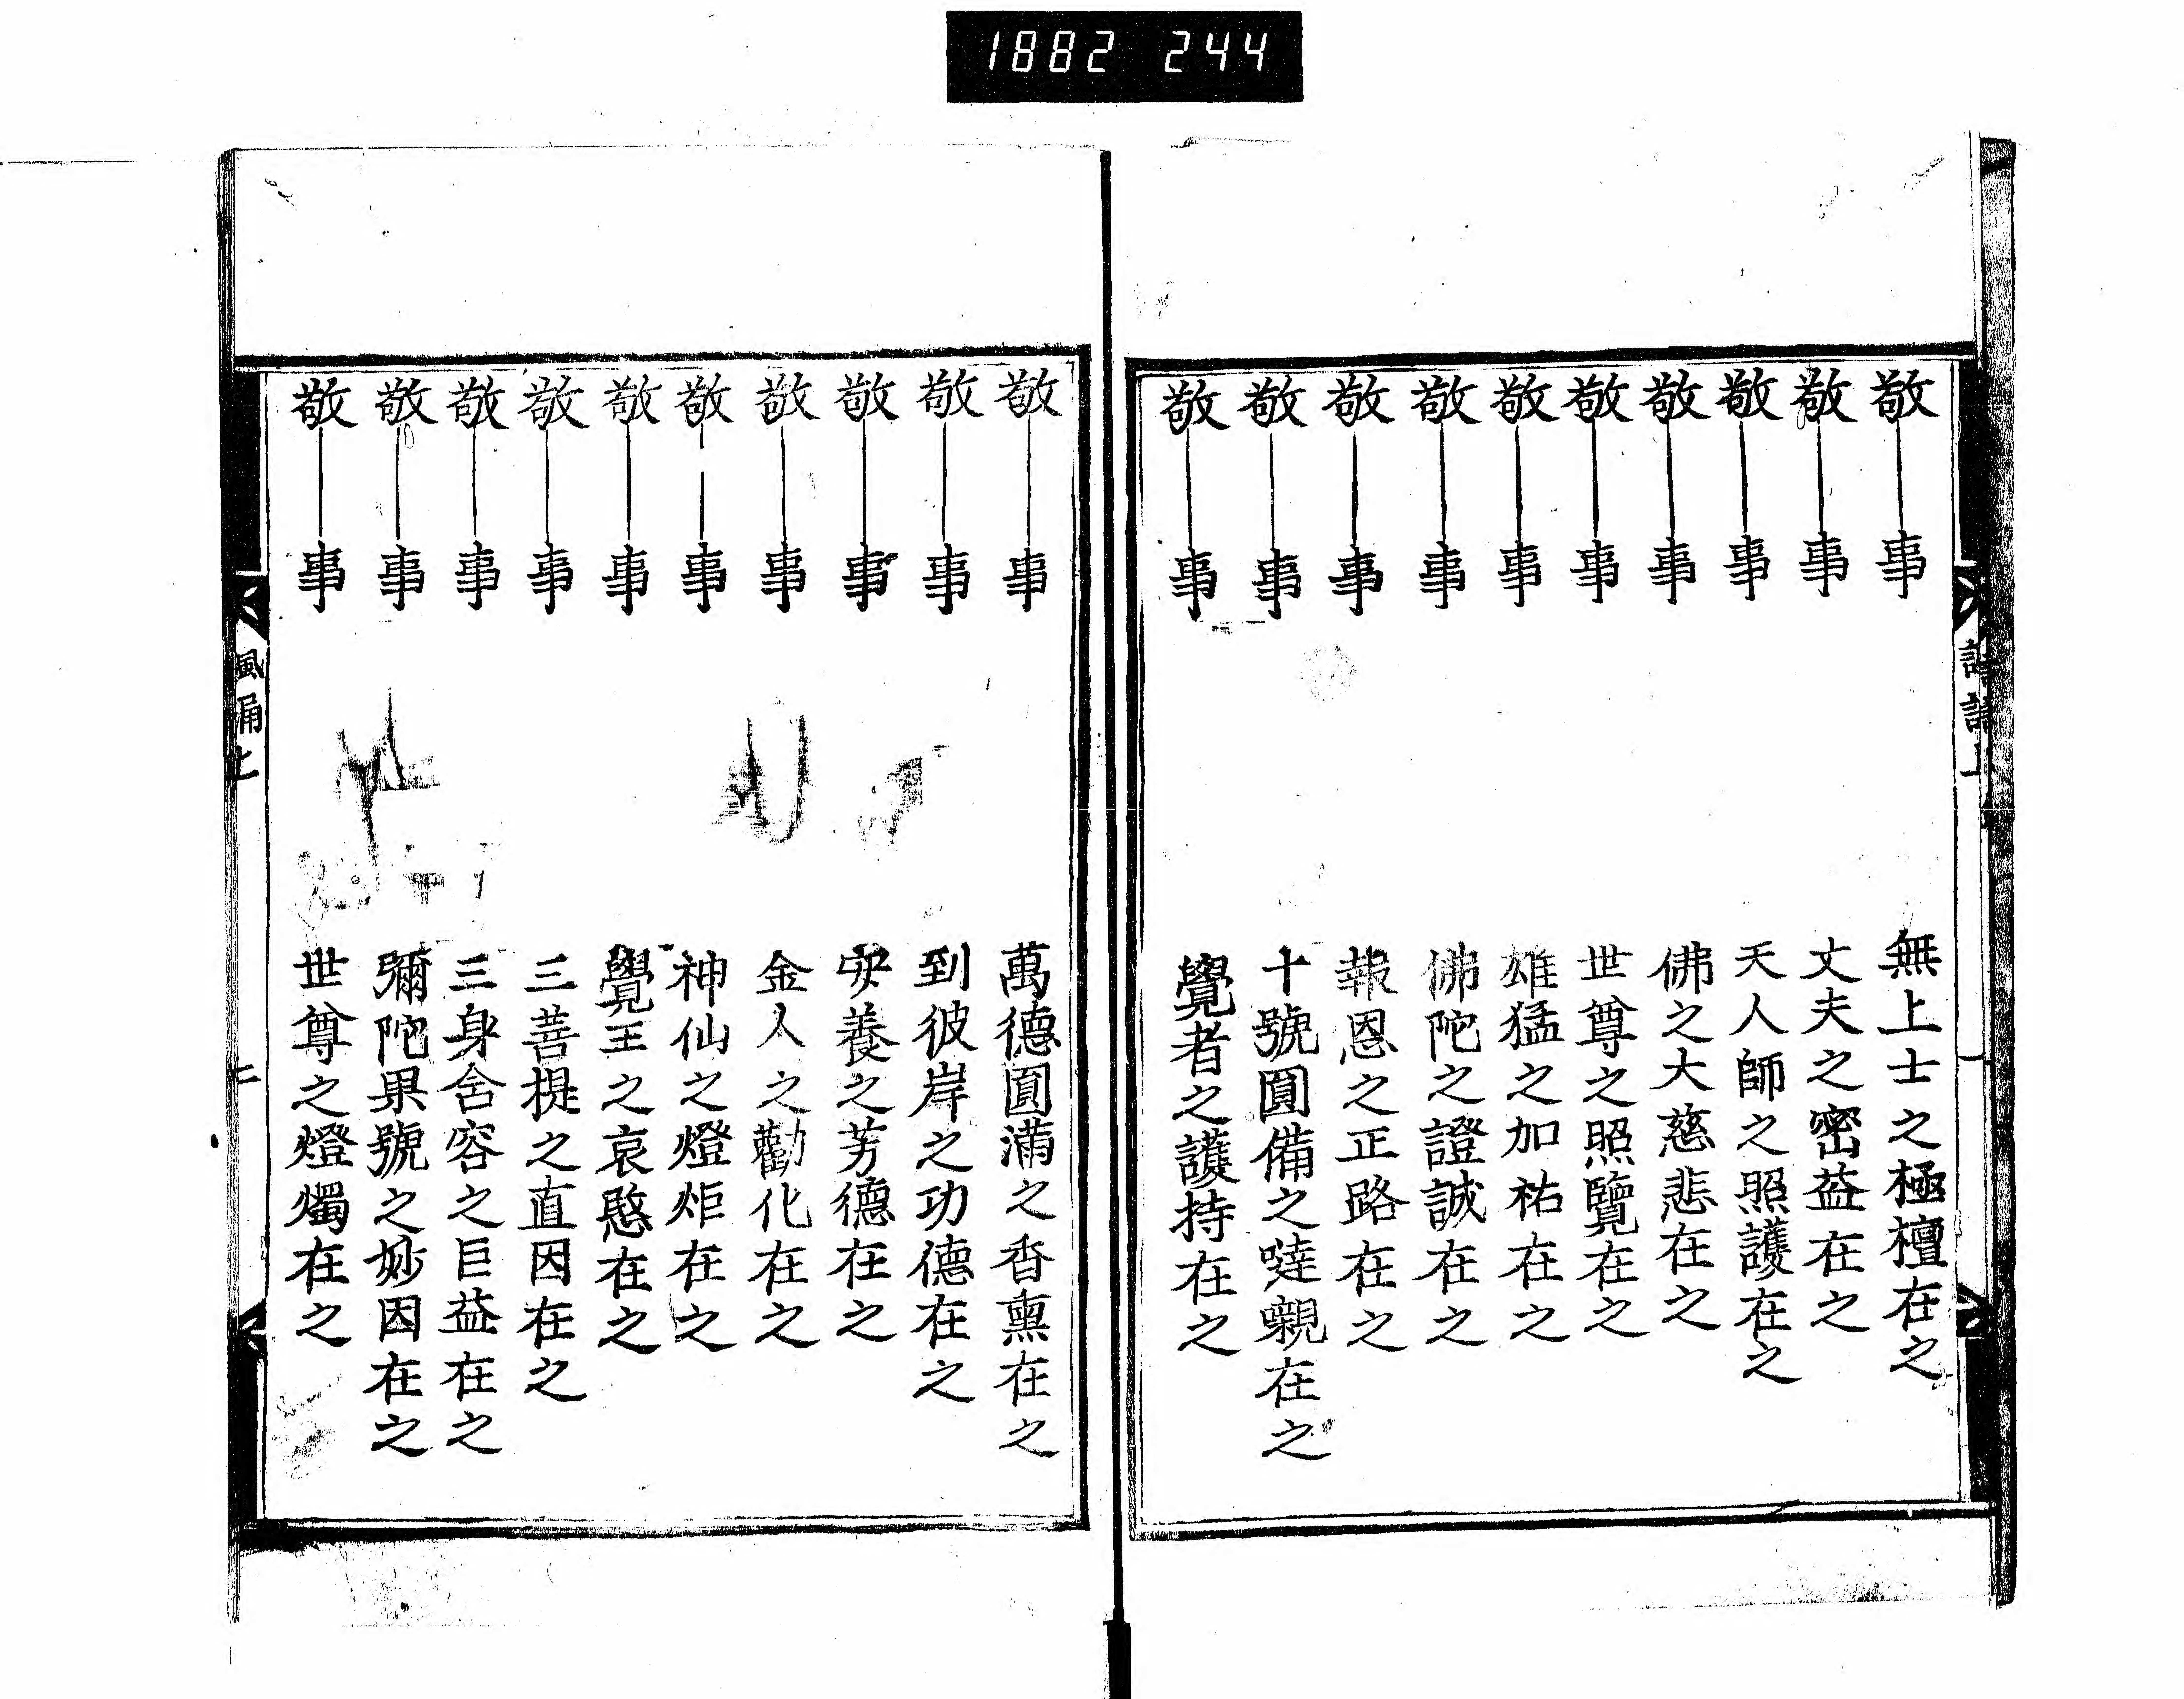 1882 244
敬―事 無上士之極檀在之
敬―事 丈夫之密益在之
敬―事 天人師之照護在之
敬―事 佛之大慈悲在之
敬―事 世尊之照覽在之
敬―事 雄猛之加祐在之
敬―事 佛陀之證誠在之
敬―事 報恩之正路在之
敬―事 十號圓備之噠嚫在之
敬―事 覺者之護持在之
敬―事 萬德圓滿之香熏在之
敬―事 到彼岸之功德在之
敬―事 安養之芳德在之
敬―事 金人之勸化在之
敬―事 神仙之燈炬在之
敬―事 覺王之哀愍在之
敬―事 三菩提之直因在之
敬―事 三身舍容之巨益在之
敬―事 彌陀果號之妙因在之
敬―事 世尊之燈燭在之
風 上
二